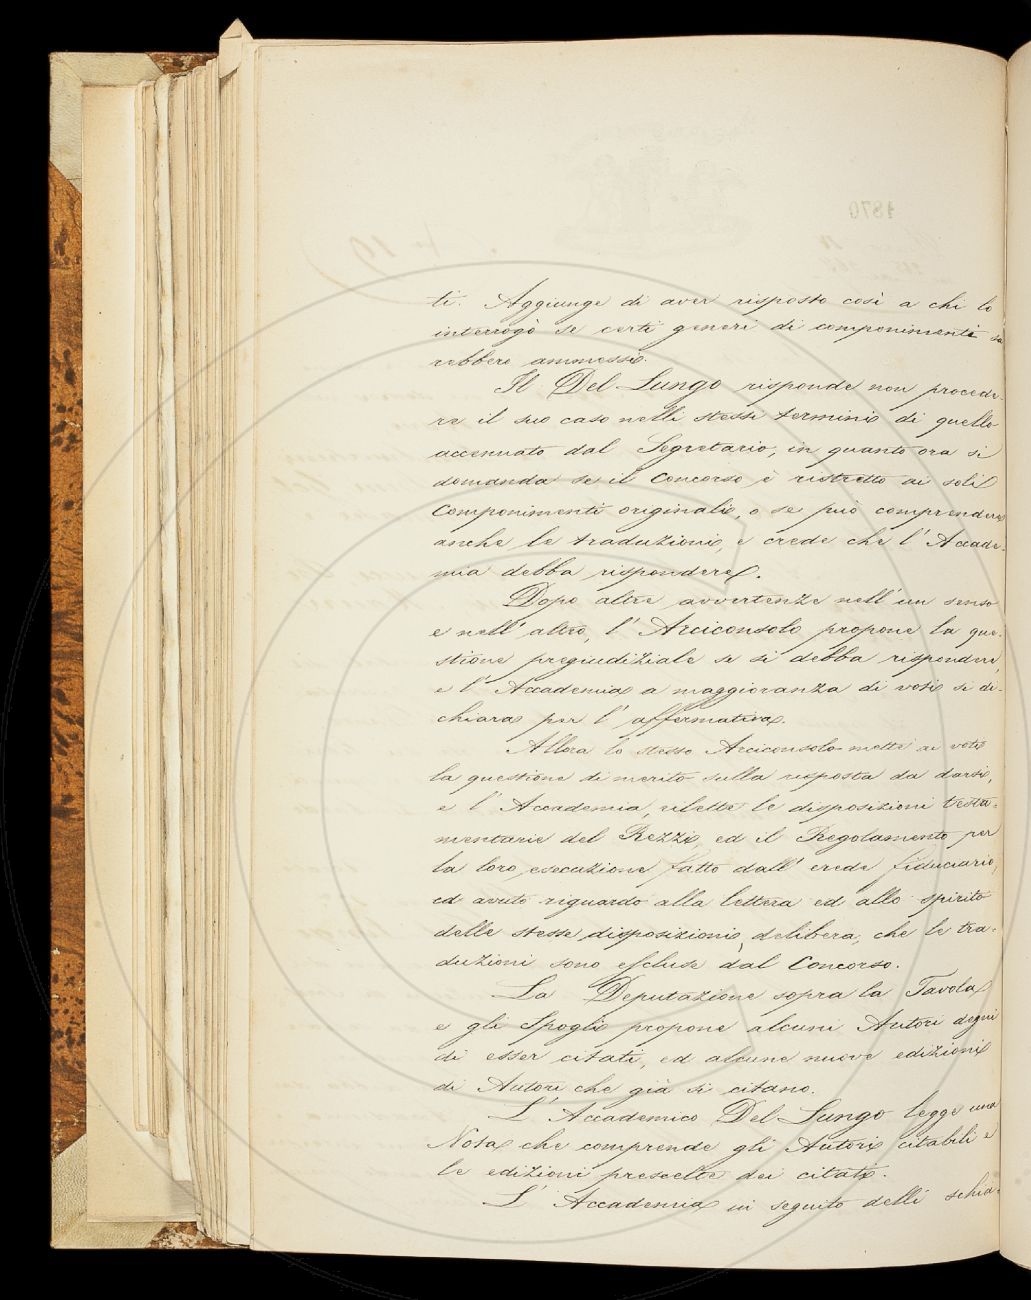 ti. Aggiunge di aver risposto così a chi lo
interrogò se certi generi di componimenti sa
rebbero ammessi.
Il Del Lungo risponde non procede-
re il suo caso nelli stessi termini di quello
accennato dal Segretario, in quanto ora si
domanda se il Concorso è ristretto ai soli
Componimenti originali, o se può comprendere
anche le traduzioni, e crede che l'Accade-
mia debba rispondere.
Dopo altre avvertenze nell'un senso
e nell'altro, l'Arciconsolo propone la que-
stione pregiudiziale se si debba rispondere,
e l'Accademia a maggioranza di voti si di-
chiara per l'affermativa.
Allora lo stesso Arciconsolo mette ai voti
la questione di merito sulla risposta da darsi,
e l'Accademia, rilette le disposizioni testa-
mentarie del Rezzi, ed il Regolamento per
la loro esecuzione fatto dall'erede fiduciario,
ed avuto riguardo alla lettera ed allo spirito
delle stesse disposizioni, delibera, che le tra-
duzioni sono escluse dal Concorso.
La Deputazione sopra la Tavola
e gli Spogli propone alcuni Autori degni
di esser citati, ed alcune nuove edizioni
di Autori che già si citano.
L'Accademico Del Lungo legge una
Nota che comprende gli Autori citabili e
le edizioni prescelte dei citati.
L'Accademia in seguito delli schia-
1870